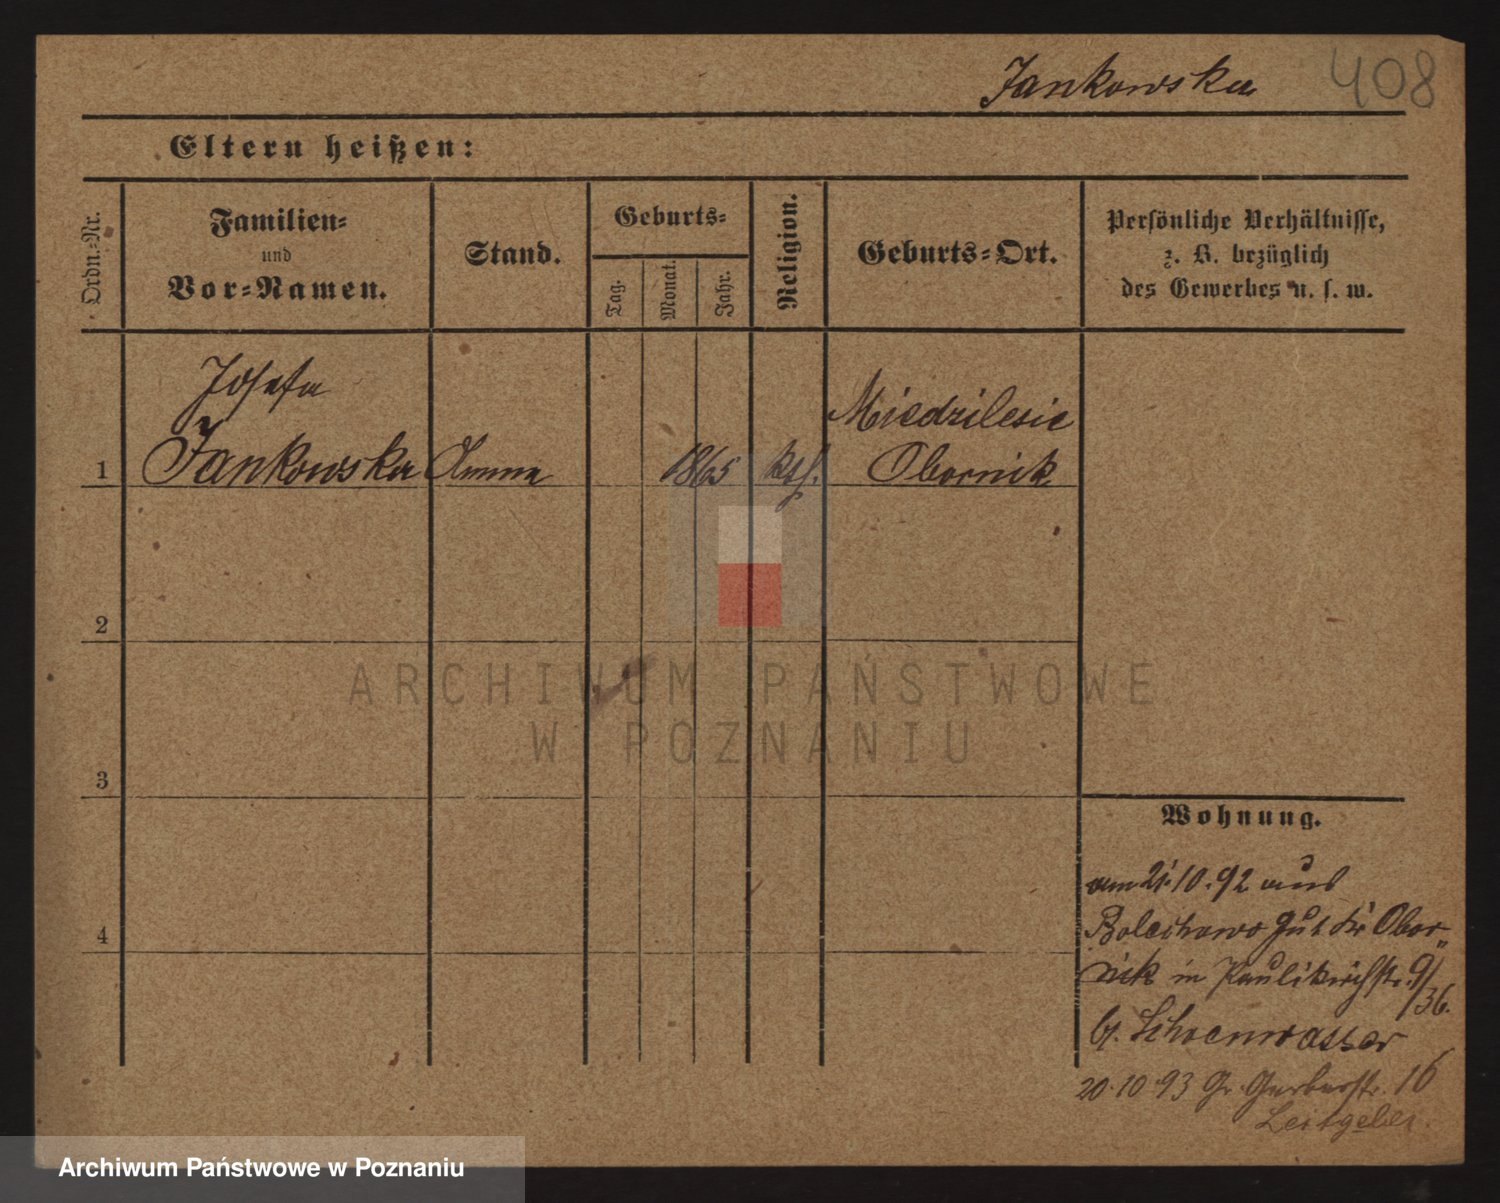 Jankowska 408
Eltern heißen:
Ordn.-Nr.
Familien-
und
Vor-Namen.
Stand.
Geburts-
Tag.
Monat.
Jahr.
Religion.
Geburts-Ort.
Persönliche Verhältnisse,
z. B. bezüglich
des Gewerbes u. s. w.
Josefa
Miedzilesie
1 Jankowska Amme 1865 kth. Obornik
2
3
4
Wohnung.
am 21.10.92 aus
Bolechowo Gut Kr Obor-
nik in Paulikirchstr. 9/
36.
b. Schoenwasser
20.10.93 Gr. Gerberstr. 16
Leitgeber.
ARCHIWUM PAŃSTWOWE
W POZNANIU
Archiwum Państwowe w Poznaniu